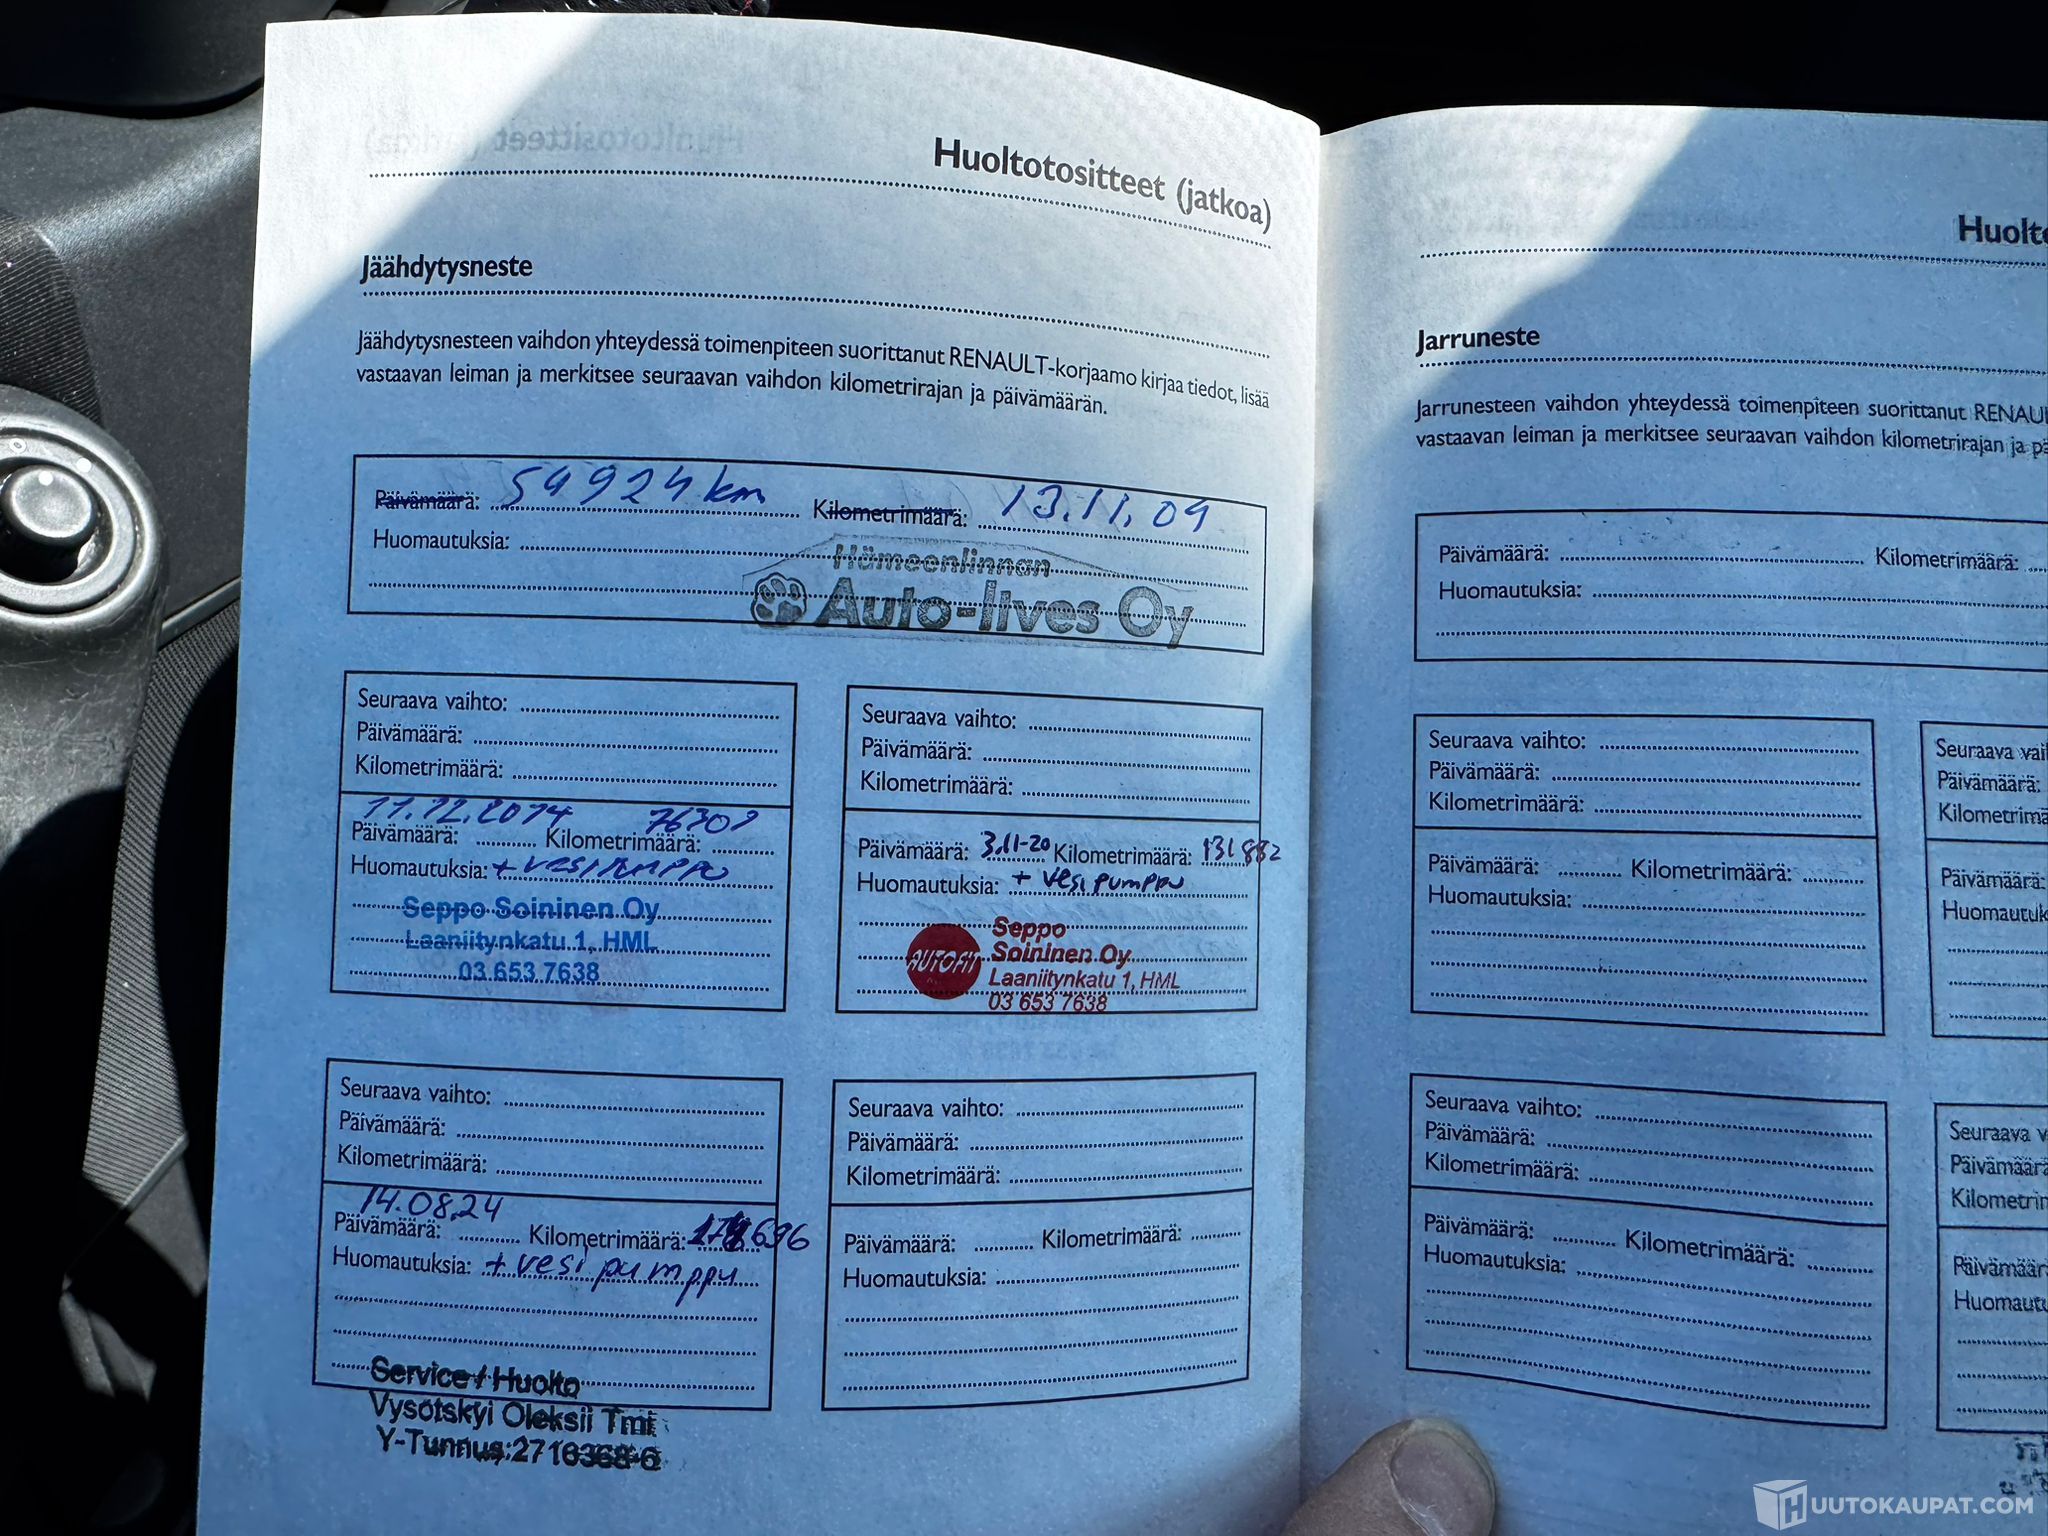 Huoltotositteet (jatkoa)
Jäähdytysneste
Jäähdytysnesteen vaihdon yhteydessä toimenpiteen suorittanut RENAULT-korjaamo kirjaa tiedot, lisää
vastaavan leiman ja merkitsee seuraavan vaihdon kilometrirajan ja päivämäärän.
Päivämäärä: 54924 km Kilometrimäärä: 13.11.09
Huomautuksia:
Hämeenlinnan
Auto-Ilves Oy
Seuraava vaihto:
Päivämäärä:
Kilometrimäärä:
11.12.2014 76307
Päivämäärä: Kilometrimäärä:
Huomautuksia: + vesipumppu
Seppo Soininen Oy
Laaniitynkatu 1, HML
03 653 7638
Seuraava vaihto:
Päivämäärä:
Kilometrimäärä:
Päivämäärä: 3.11-20 Kilometrimäärä: 131882
Huomautuksia: + vesipumppu
AUTOFIT
Seppo
Soininen Oy
Laaniitynkatu 1, HML
03 653 7638
Seuraava vaihto:
Päivämäärä:
Kilometrimäärä:
14.08.24
Päivämäärä: Kilometrimäärä:
Huomautuksia: + vesipumppu
Service / Huolto
Vysotskyi Oleksii Tmi
Y-Tunnus:2716368-6
Seuraava vaihto:
Päivämäärä:
Kilometrimäärä:
Päivämäärä: Kilometrimäärä:
Huomautuksia:
Huolto
Jarruneste
Jarrunesteen vaihdon yhteydessä toimenpiteen suorittanut RENAU
vastaavan leiman ja merkitsee seuraavan vaihdon kilometrirajan ja pä
Päivämäärä: Kilometrimäärä:
Huomautuksia:
Seuraava vaihto:
Päivämäärä:
Kilometrimäärä:
Päivämäärä: Kilometrimäärä:
Huomautuksia:
Seuraava vai
Päivämäärä:
Kilometrimä
Päivämäärä:
Huomautuk
Seuraava vaihto:
Päivämäärä:
Kilometrimäärä:
Päivämäärä: Kilometrimäärä:
Huomautuksia:
Seuraava v
Päivämäärä
Kilometrim
Päivämäär
Huomautu
HUUTOKAUPAT.COM